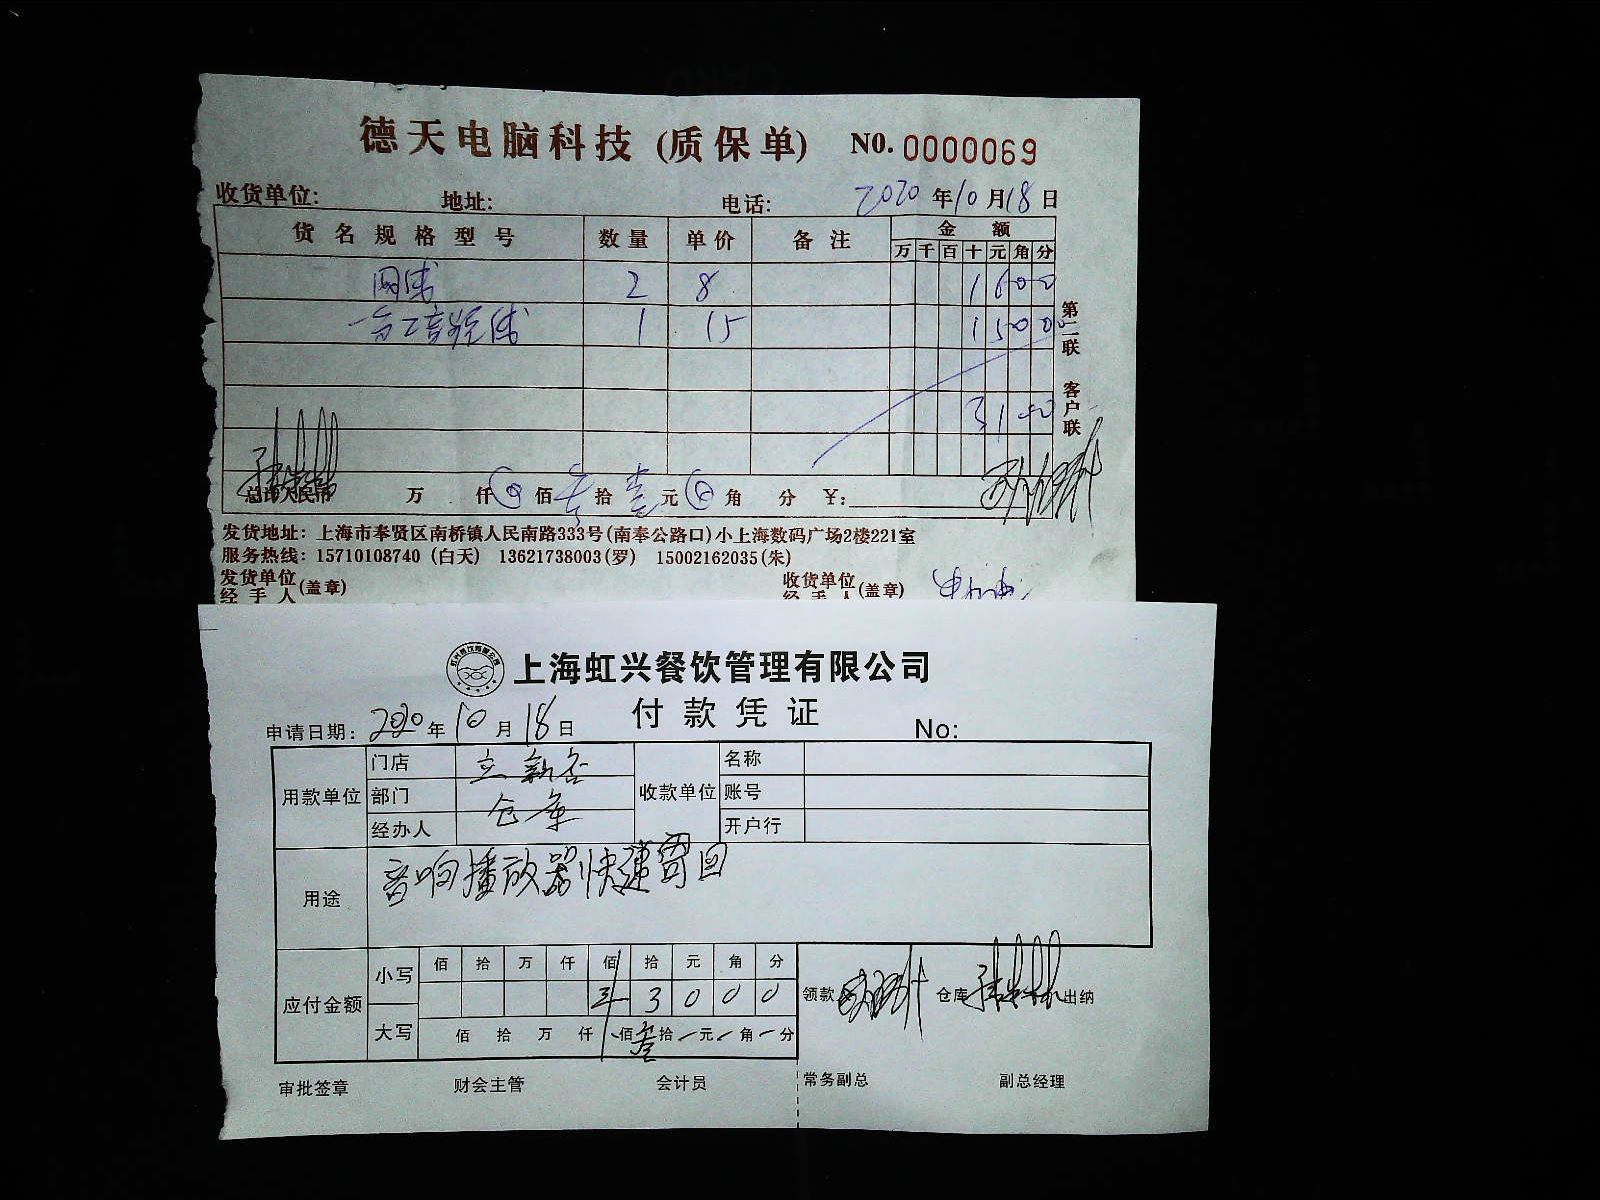 德天电脑科技 (质保单) NO. 0000069
收货单位: 地址: 电话: 2020 年 10 月 18 日
货名规格型号 数量 单价 备注 金额
万 千 百 十 元 角 分
2 8 1 6 0 0
1 15 1 5 0 0
3 1 0 0
第二联 客户联
总计人民币 万 仟 佰 叁 拾 壹 元 角 分 ¥:
发货地址: 上海市奉贤区南桥镇人民南路333号(南奉公路口)小上海数码广场2楼221室
服务热线: 15710108740 (白天) 13621738003(罗) 15002162035(朱)
发货单位 (盖章) 收货单位 (盖章)
经手人 经手人
上海虹兴餐饮管理有限公司
付款凭证
申请日期: 2020 年 10 月 18 日 No:
用款单位 门店 收款单位 名称
部门 仓库 账号
经办人 开户行
用途 音响播放器快速寄回
应付金额 小写 佰 拾 万 仟 佰 拾 元 角 分
3 0 0 0
大写 佰 拾 万 仟 佰 叁 拾 元 角 分
领款 仓库 出纳
审批签章 财会主管 会计员 常务副总 副总经理